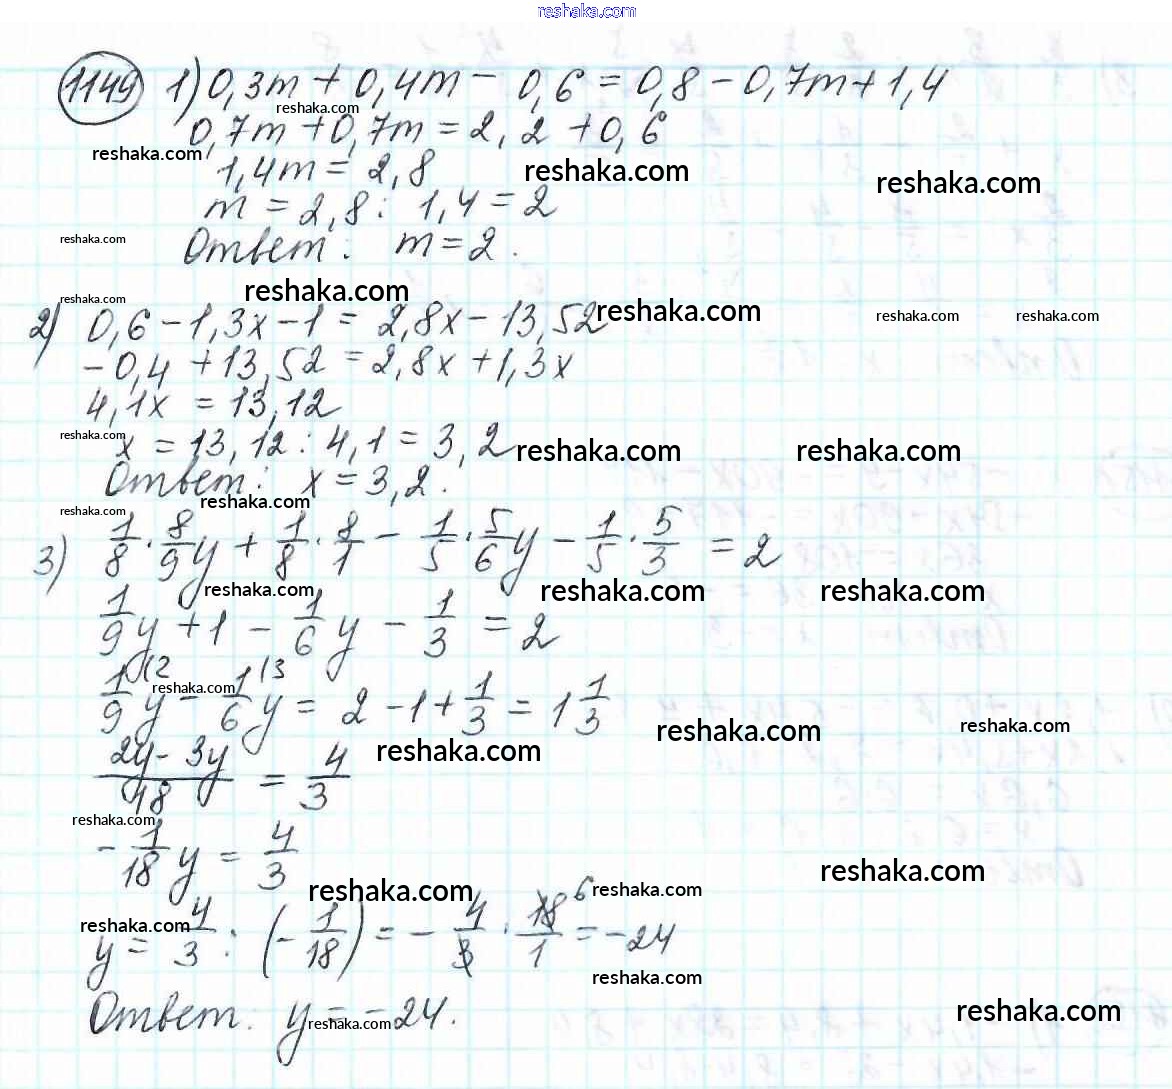 reshaka.com
1149 1) 0,3m + 0,4m - 0,6 = 0,8 - 0,7m + 1,4
reshaka.com
0,7m + 0,7m = 2,2 + 0,6
reshaka.com
1,4m = 2,8
reshaka.com
reshaka.com
m = 2,8 : 1,4 = 2
reshaka.com
Ответ: m = 2.
reshaka.com
reshaka.com
reshaka.com
reshaka.com
reshaka.com
2) 0,6 - 1,3x - 1 = 2,8x - 13,52
reshaka.com
-0,4 + 13,52 = 2,8x + 1,3x
4,1x = 13,12
reshaka.com
x = 13,12 : 4,1 = 3,2
reshaka.com
reshaka.com
Ответ: x = 3,2.
reshaka.com
reshaka.com
3) 1/8 · 8/9 y + 1/8 · 8/1 - 1/5 · 5/6 y - 1/5 · 5/3 = 2
reshaka.com
reshaka.com
reshaka.com
1/9 y + 1 - 1/6 y - 1/3 = 2
reshaka.com
1/9 y \2 - 1/6 y \3 = 2 - 1 + 1/3 = 1 1/3
reshaka.com
reshaka.com
reshaka.com
2y - 3y / 18 = 4/3
reshaka.com
- 1/18 y = 4/3
reshaka.com
reshaka.com
reshaka.com
reshaka.com
y = 4/3 : (- 1/18) = - 4/3 · 18/1 6 = -24
reshaka.com
Ответ: y = -24.
reshaka.com
reshaka.com